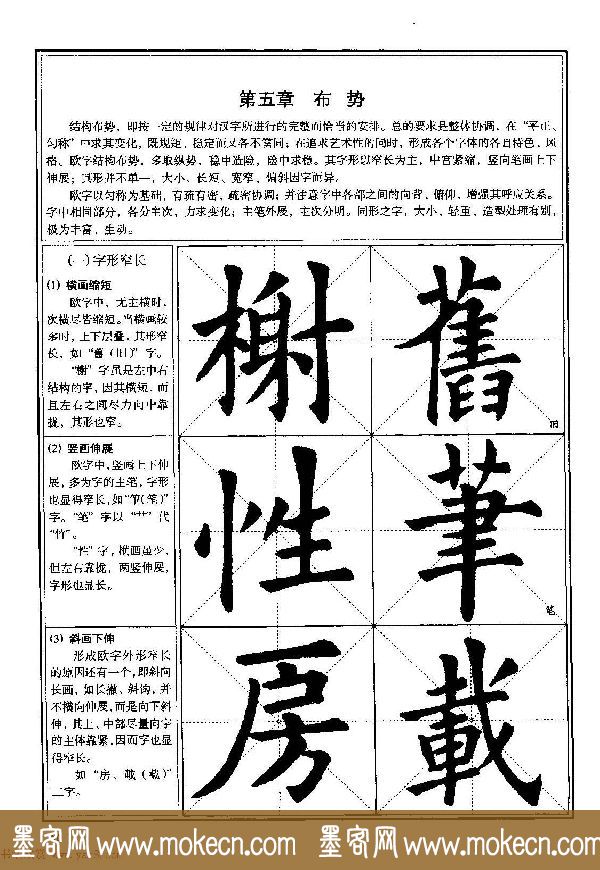 第五章 布 势
结构布势，即按一定的规律对汉字所进行的完整而恰当的安排。总的要求是整体协调，在“平正、
匀称”中求其变化，既规矩、稳定而又各不雷同；在追求艺术性的同时，形成各个字体的各自特色、风
格。欧字结构布势，多取纵势，稳中造险，险中求稳。其字形以窄长为主，中宫紧缩，竖向笔画上下
伸展；其形并不单一，大小、长短、宽窄、偏斜因字而异。
欧字以匀称为基础，有疏有密，疏密协调；并注意字中各部之间的向背、俯仰，增强其呼应关系。
字中相同部分，各分主次，力求变化；主笔外展，主次分明。同形之字，大小、轻重、造型处理有别，
极为丰富、生动。
(一)字形窄长
(1) 横画缩短
欧字中，无主横时，
次横尽皆缩短。当横画较
多时，上下层叠，其形窄
长，如“舊（旧）”字。
“榭”字虽是左中右
结构的字，因其横短，而
且左右之间尽力向中靠
拢，其形也窄。
榭 舊
旧
(2) 竖画伸展
欧字中，竖画上下伸
展，多为字的主笔，字形
也显得窄长，如“筆(笔)”
字。“笔”字以“艹”代
“竹”。
“性”字，横画虽少，
但左右靠拢，两竖伸展，
字形也显长。
性 筆
笔
(3) 斜画下伸
形成欧字外形窄长
的原因还有一个，即斜向
长画，如长撇、斜钩，并
不横向伸展，而是向下斜
伸，其上、中部尽量向字
的主体靠紧，因而字也显
得窄长。
如“房、載（载）”
二字。
房 載
墨客网 www.mokecn.com 墨客网 www.mokecn.com